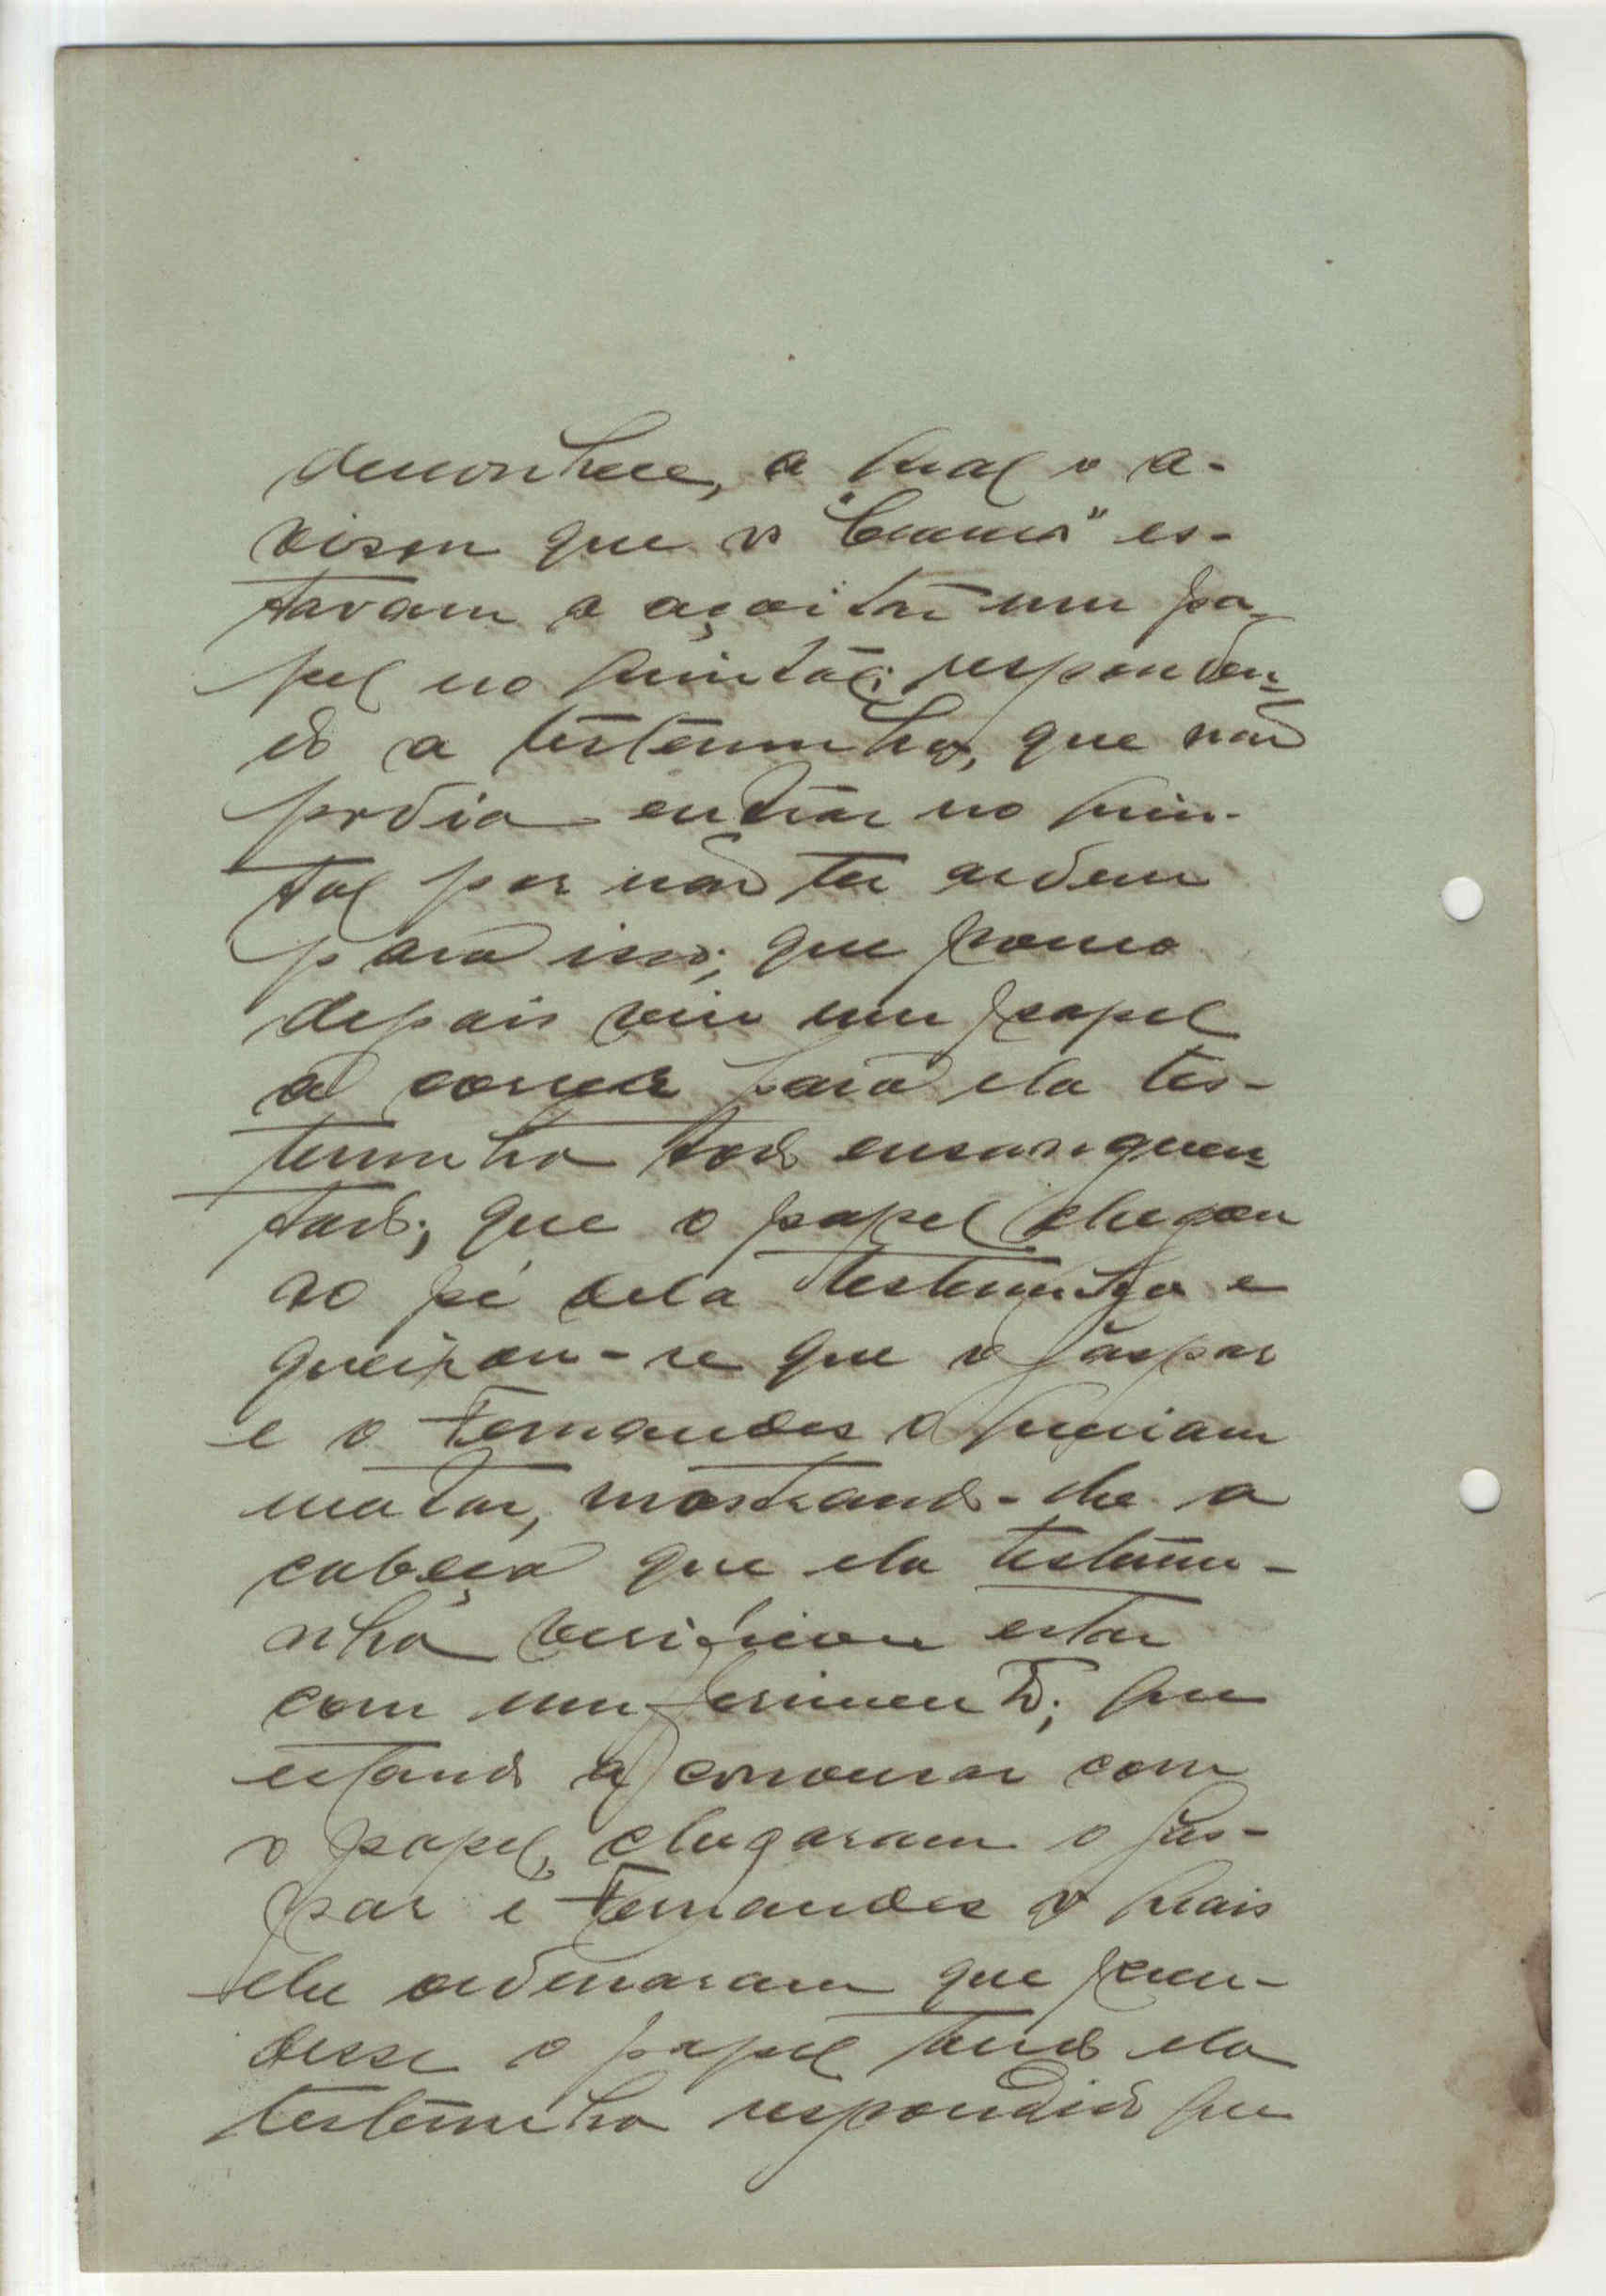 desconhece, a qual o a-
visou que os "brancos" es-
tavam a açoitar um pa-
pel no quintal; responden-
do a testemunha, que não
podia entrar no quin-
tal por não ter ordem
para isso; que pouco
depois veiu um papel
a correr para ela tes-
temunha todo ensanguen-
tado; que o papel chegou
ao pé dela testemunha e
queixou-se que o Gaspar
e o Fernandes o queriam
matar, mostrando-lhe a
cabeça que ela testemu-
nha verificou estar
com um ferimento; que
estando a conversar com
o papel, chegaram o Gas-
par e Fernandes os quais
lhe ordenaram que pren-
desse o papel tendo ela
testemunha respondido que